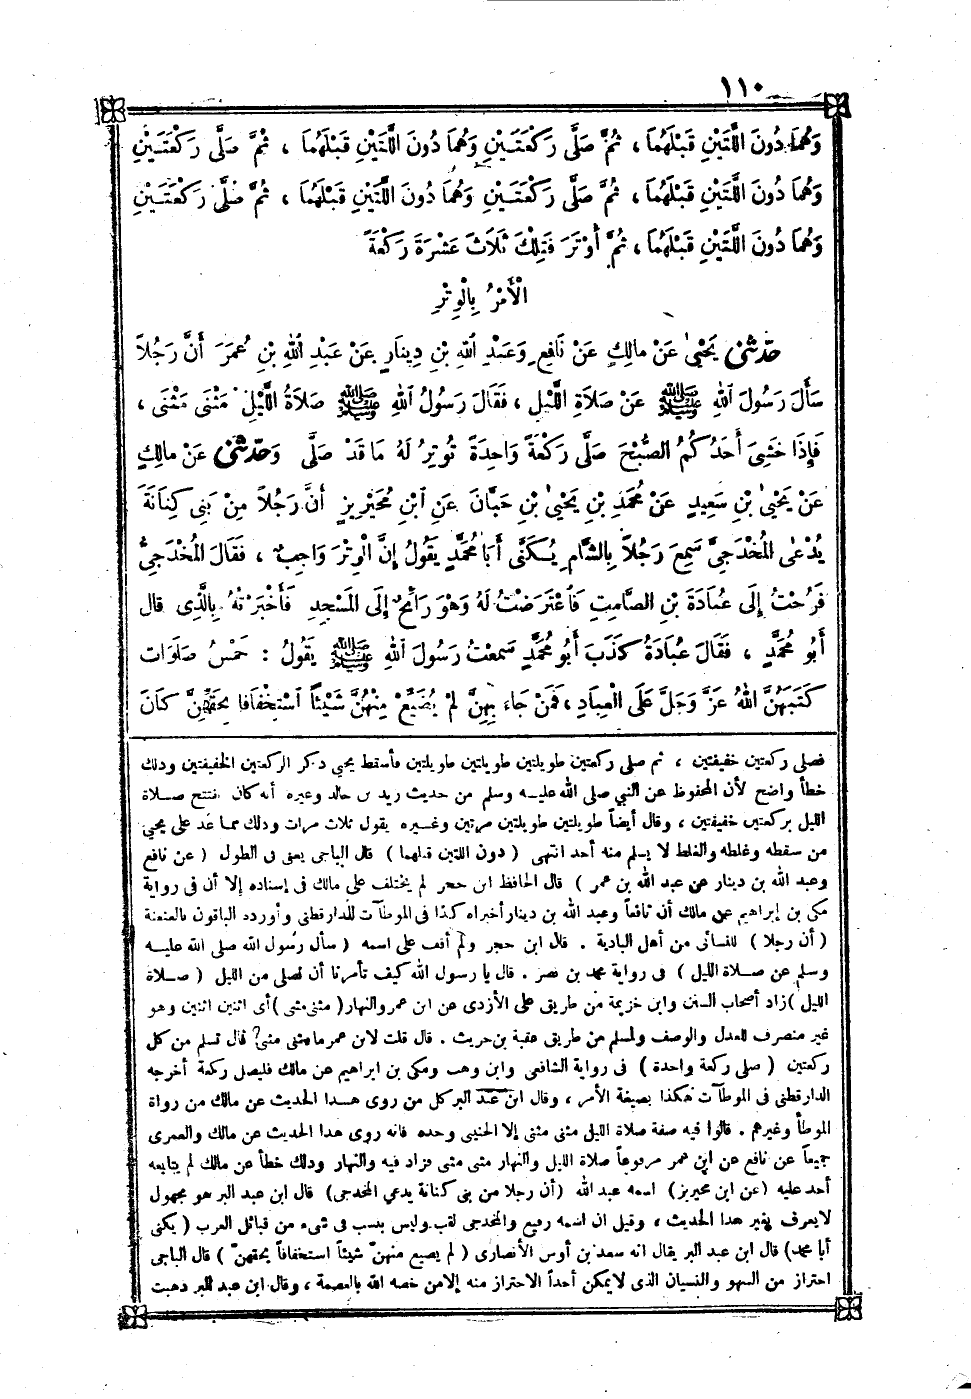 ١١٠
وَهُمَا دُونَ اللَّتَيْنِ قَبْلَهُمَا ، ثُمَّ صَلَّى رَكْعَتَيْنِ وَهُمَا دُونَ اللَّتَيْنِ قَبْلَهُمَا ، ثُمَّ صَلَّى رَكْعَتَيْنِ
وَهُمَا دُونَ اللَّتَيْنِ قَبْلَهُمَا ، ثُمَّ صَلَّى رَكْعَتَيْنِ وَهُمَا دُونَ اللَّتَيْنِ قَبْلَهُمَا ، ثُمَّ صَلَّى رَكْعَتَيْنِ
وَهُمَا دُونَ اللَّتَيْنِ قَبْلَهُمَا ، ثُمَّ أَوْتَرَ فَتِلْكَ ثَلَاثَ عَشْرَةَ رَكْعَةً
الْأَمْرُ بِالْوِتْرِ
حَدَّثَنِي يَحْيَى عَنْ مَالِكٍ عَنْ نَافِعٍ وَعَبْدِ اللهِ بْنِ دِينَارٍ عَنْ عَبْدِ اللهِ بْنِ عُمَرَ أَنَّ رَجُلاً
سَأَلَ رَسُولَ اللهِ ﷺ عَنْ صَلَاةِ اللَّيْلِ ، فَقَالَ رَسُولُ اللهِ ﷺ صَلَاةُ اللَّيْلِ مَثْنَى مَثْنَى ،
فَإِذَا خَشِيَ أَحَدُكُمُ الصُّبْحَ صَلَّى رَكْعَةً وَاحِدَةً تُوتِرُ لَهُ مَا قَدْ صَلَّى وَحَدَّثَنِي عَنْ مَالِكٍ
عَنْ يَحْيَى بْنِ سَعِيدٍ عَنْ مُحَمَّدِ بْنِ يَحْيَى بْنِ حَبَّانَ عَنِ ابْنِ مُحَيْرِيزٍ أَنَّ رَجُلاً مِنْ بَنِي كِنَانَةَ
يُدْعَى الْمُخْدَجِيَّ سَمِعَ رَجُلاً بِالشَّامِ يُكَنَّى أَبَا مُحَمَّدٍ يَقُولُ إِنَّ الْوِتْرَ وَاجِبٌ ، فَقَالَ الْمُخْدَجِيُّ
فَرُحْتُ إِلَى عُبَادَةَ بْنِ الصَّامِتِ فَاعْتَرَضْتُ لَهُ وَهُوَ رَائِحٌ إِلَى الْمَسْجِدِ فَأَخْبَرْتُهُ بِالَّذِي قَالَ
أَبُو مُحَمَّدٍ ، فَقَالَ عُبَادَةُ كَذَبَ أَبُو مُحَمَّدٍ سَمِعْتُ رَسُولَ اللهِ ﷺ يَقُولُ : خَمْسُ صَلَوَاتٍ
كَتَبَهُنَّ اللهُ عَزَّ وَجَلَّ عَلَى الْعِبَادِ ، فَمَنْ جَاءَ بِهِنَّ لَمْ يُضَيِّعْ مِنْهُنَّ شَيْئاً اسْتِخْفَافاً بِحَقِّهِنَّ كَانَ
فصلى ركعتين خفيفتين ، ثم صلى ركعتين طويلتين طويلتين طويلتين فأسقط يحيى ذكر الركعتين الخفيفتين وذلك
خطأ واضح لأن المحفوظ عن النبي صلى الله عليه وسلم من حديث زيد بن خالد وغيره أنه كان يفتتح صلاة
الليل بركعتين خفيفتين ، وقال أيضاً طويلتين طويلتين مرتين وغيره يقول ثلاث مرات وذلك مما عد على يحيى
من سقطه وغلطه والغلط لا يسلم منه أحد انتهى ( دون اللتين قبلهما ) قال الباجي يعني في الطول ( عن نافع
وعبد الله بن دينار عن عبد الله بن عمر ) قال الحافظ ابن حجر لم يختلف على مالك في إسناده إلا أن في رواية
مكي بن إبراهيم عن مالك أن نافعاً وعبد الله بن دينار أخبراه كذا في الموطآت للدارقطني وأورده الباقون بالعنعنة
( أن رجلا ) للنسائي من أهل البادية . قال ابن حجر ولم أقف على اسمه ( سأل رسول الله صلى الله عليه
وسلم عن صلاة الليل ) في رواية محمد بن نصر . قال يا رسول الله كيف تأمرنا أن نصلي من الليل ( صلاة
الليل ) زاد أصحاب السنن وابن خزيمة من طريق علي الأزدي عن ابن عمر والنهار ( مثنى مثنى ) أي اثنين اثنين وهو
غير منصرف للعدل والوصف ولمسلم من طريق عقبة بن حريث . قال قلت لابن عمر ما مثنى مثنى؟ قال تسلم من كل
ركعتين ( صلى ركعة واحدة ) في رواية الشافعي وابن وهب ومكي بن ابراهيم عن مالك فليصل ركعة أخرجه
الدارقطني في الموطآت هكذا بصيغة الأمر ، وقال ابن عبد البر كل من روى هذا الحديث عن مالك من رواة
الموطأ وغيرهم . قالوا فيه صفة صلاة الليل مثنى مثنى إلا الحنيني وحده فانه روى هذا الحديث عن مالك والعمرى
جميعاً عن نافع عن ابن عمر مرفوعاً صلاة الليل والنهار مثنى مثنى فزاد فيه والنهار وذلك خطأ عن مالك لم يتابعه
أحد عليه (عن ابن محيريز) اسمه عبد الله (أن رجلا من بني كنانة يدعي المخدجى) قال ابن عبد البر هو مجهول
لايعرف بغير هذا الحديث ، وقيل ان اسمه رفيع والمخدجى لقب وليس بنسب في شيء من قبائل العرب ( يكنى
أبا محمد) قال ابن عبد البر يقال انه سعد بن أوس الأنصارى ( لم يضيع منهن شيئاً استخفافاً بحقهن ) قال الباجي
احتراز من السهو والنسيان الذى لا يمكن أحداً الاحتراز منه إلا من خصه الله بالعصمة ، وقال ابن عبد البر ذهبت